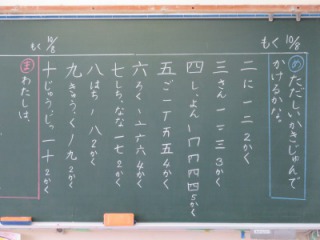 10/8 もく
め ただしいかきじゅんで
かけるかな。
二 に 一 二 2かく
三 さん 一 二 三 3かく
四 し、よん 5かく
五 ご 一 丁 五 五 4かく
六 ろく 丶 亠 六 六 4かく
七 しち、なな 一 七 2かく
八 はち ノ 八 2かく
九 きゅう、く ノ 九 2かく
十 じゅう、じっ 一 十 2かく
10/8 もく
ま わたしは、